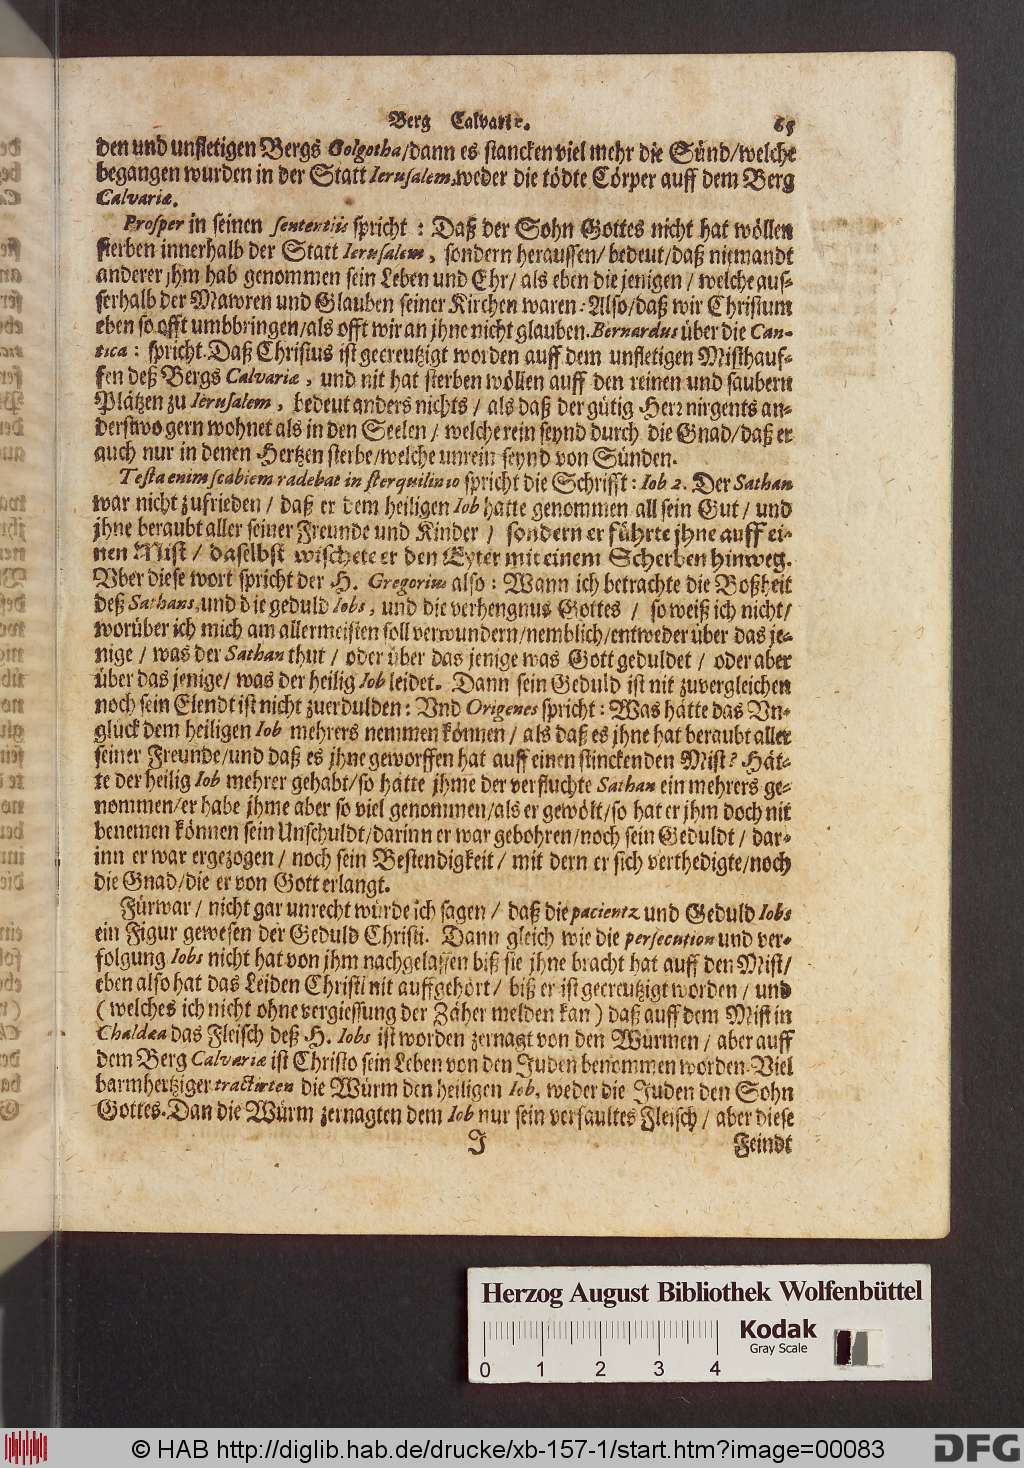 Berg Calvariæ. 65
den und unfletigen Bergs Golgotha/dann es stancken viel mehr die Sünd/welche
begangen wurden in der Statt Ierusalem, weder die tödte Cörper auff dem Berg
Calvariæ.
Prosper in seinen sententiis spricht : Daß der Sohn Gottes nicht hat wöllen
sterben innerhalb der Statt Ierusalem, sondern heraussen/ bedeut/daß niemandt
anderer jhm hab genommen sein Leben und Ehr/ als eben die jenigen / welche aus-
serhalb der Mawren und Glauben seiner Kirchen waren: Also/daß wir Christum
eben so offt umbbringen/als offt wir an jhne nicht glauben. Bernardus über die Can-
tica : spricht. Daß Christus ist gecreutzigt worden auff dem unfletigen Misthauf-
fen deß Bergs Calvariæ, und nit hat sterben wöllen auff den reinen und saubern
Plätzen zu Ierusalem, bedeut anders nichts / als daß der gütig Herr nirgents an-
derstwo gern wohnet als in den Seelen / welche rein seynd durch die Gnad/daß er
auch nur in denen Hertzen sterbe/welche unrein seynd von Sünden.
Testa enim scabiem radebat in sterquilinio spricht die Schrifft: Iob 2. Der Sathan
war nicht zufrieden / daß er dem heiligen Iob hatte genommen all sein Gut / und
jhne beraubt aller seiner Freunde und Kinder / sondern er führte jhne auff ei-
nen Mist / daselbst wischete er den Eyter mit einem Scherben hinweg.
Vber diese wort spricht der H. Gregorius also : Wann ich betrachte die Boßheit
deß Sathans, und die geduld Iobs, und die verhengnus Gottes / so weiß ich nicht/
worüber ich mich am allermeisten soll verwundern/nemblich/entweder über das je-
nige / was der Sathan thut / oder über das jenige was Gott geduldet / oder aber
über das jenige/ was der heilig Iob leidet. Dann sein Geduld ist nit zuvergleichen
noch sein Elendt ist nicht zuerdulden: Vnd Origenes spricht : Was hätte das Vn-
glück dem heiligen Iob mehrers nemmen können / als daß es jhne hat beraubt aller
seiner Freunde/und daß es jhne geworffen hat auff einen stinckenden Mist? Hät-
te der heilig Iob mehrer gehabt/so hätte jhme der verfluchte Sathan ein mehrers ge-
nommen/er habe jhme aber so viel genommen/als er gewölt/so hat er jhm doch nit
benemen können sein Unschuldt/darinn er war gebohren/noch sein Geduldt / dar-
inn er war ergezogen / noch sein Bestendigkeit / mit dern er sich verthedigte/noch
die Gnad/die er von Gott erlangt.
Fürwar / nicht gar unrecht würde ich sagen / daß die pacientz und Geduld Iobs
ein Figur gewesen der Geduld Christi. Dann gleich wie die persecution und ver-
folgung Iobs nicht hat von jhm nachgelassen biß sie jhne bracht hat auff den Mist/
eben also hat das Leiden Christi nit auffgehört / biß er ist gecreutzigt worden / und
( welches ich nicht ohne vergiessung der Zäher melden kan ) daß auff dem Mist in
Chaldæa das Fleisch deß H. Iobs ist worden zernagt von den Würmen / aber auff
dem Berg Calvariæ ist Christo sein Leben von den Juden benommen worden. Viel
barmhertziger tractirten die Würm den heiligen Iob, weder die Juden den Sohn
Gottes. Dan die Würm zernagten dem Iob nur sein verfaultes Fleisch / aber diese
J Feindt
Herzog August Bibliothek Wolfenbüttel
Kodak
Gray Scale
0 1 2 3 4
© HAB http://diglib.hab.de/drucke/xb-157-1/start.htm?image=00083
DFG